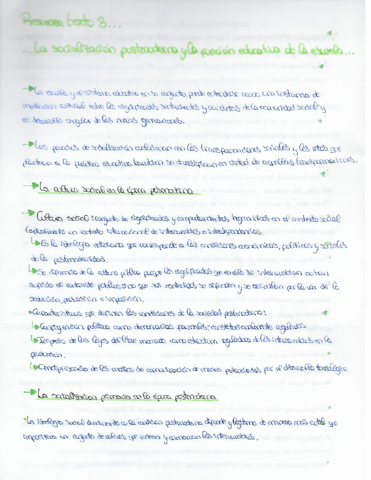 Resumen texto 8...
...La socialización postmoderna y la función educativa de la escuela...
→ La escuela y el sistema educativo en su conjunto puede entenderse como una instancia de
mediación cultural entre los significados, sentimientos y conductas de la comunidad social y
el desarrollo singular de las nuevas generaciones.
→ Los procesos de socialización evolucionan con las transformaciones sociales y los retos que
plantean a la práctica educativa también se diversifican en virtud de aquellas transformaciones.
→ La cultura social en la época postmoderna
→ Cultura social: conjunto de significados y comportamientos, hegemónicos en el contexto social
(actualmente un contexto internacional de intercambios e interdependencias).
Es la ideología cotidiana que corresponde a las condiciones económicas, políticas y sociales
de la postmodernidad.
Se diferencia de la cultura pública porque los significados que emite se intercambian en tan
supuesto al contraste público, sino que sus contenidos se difunden y se asimilan por la vía de la
seducción, persuasión e imposición.
Características que definen las condiciones de la sociedad postmoderna:
Configuración política como democracias formales, constitucionalmente reguladas.
Imperio de las leyes del libre mercado como estructura reguladora de los intercambios en la
producción.
Omnipresencia de los medios de comunicación de masas potenciados por el desarrollo tecnológico.
→ La socialización primaria en la época postmoderna
La ideología social dominante en la sociedad postmoderna difunde y legitima de manera más o menos explícita
un conjunto de valores que orientan y los intercambios.